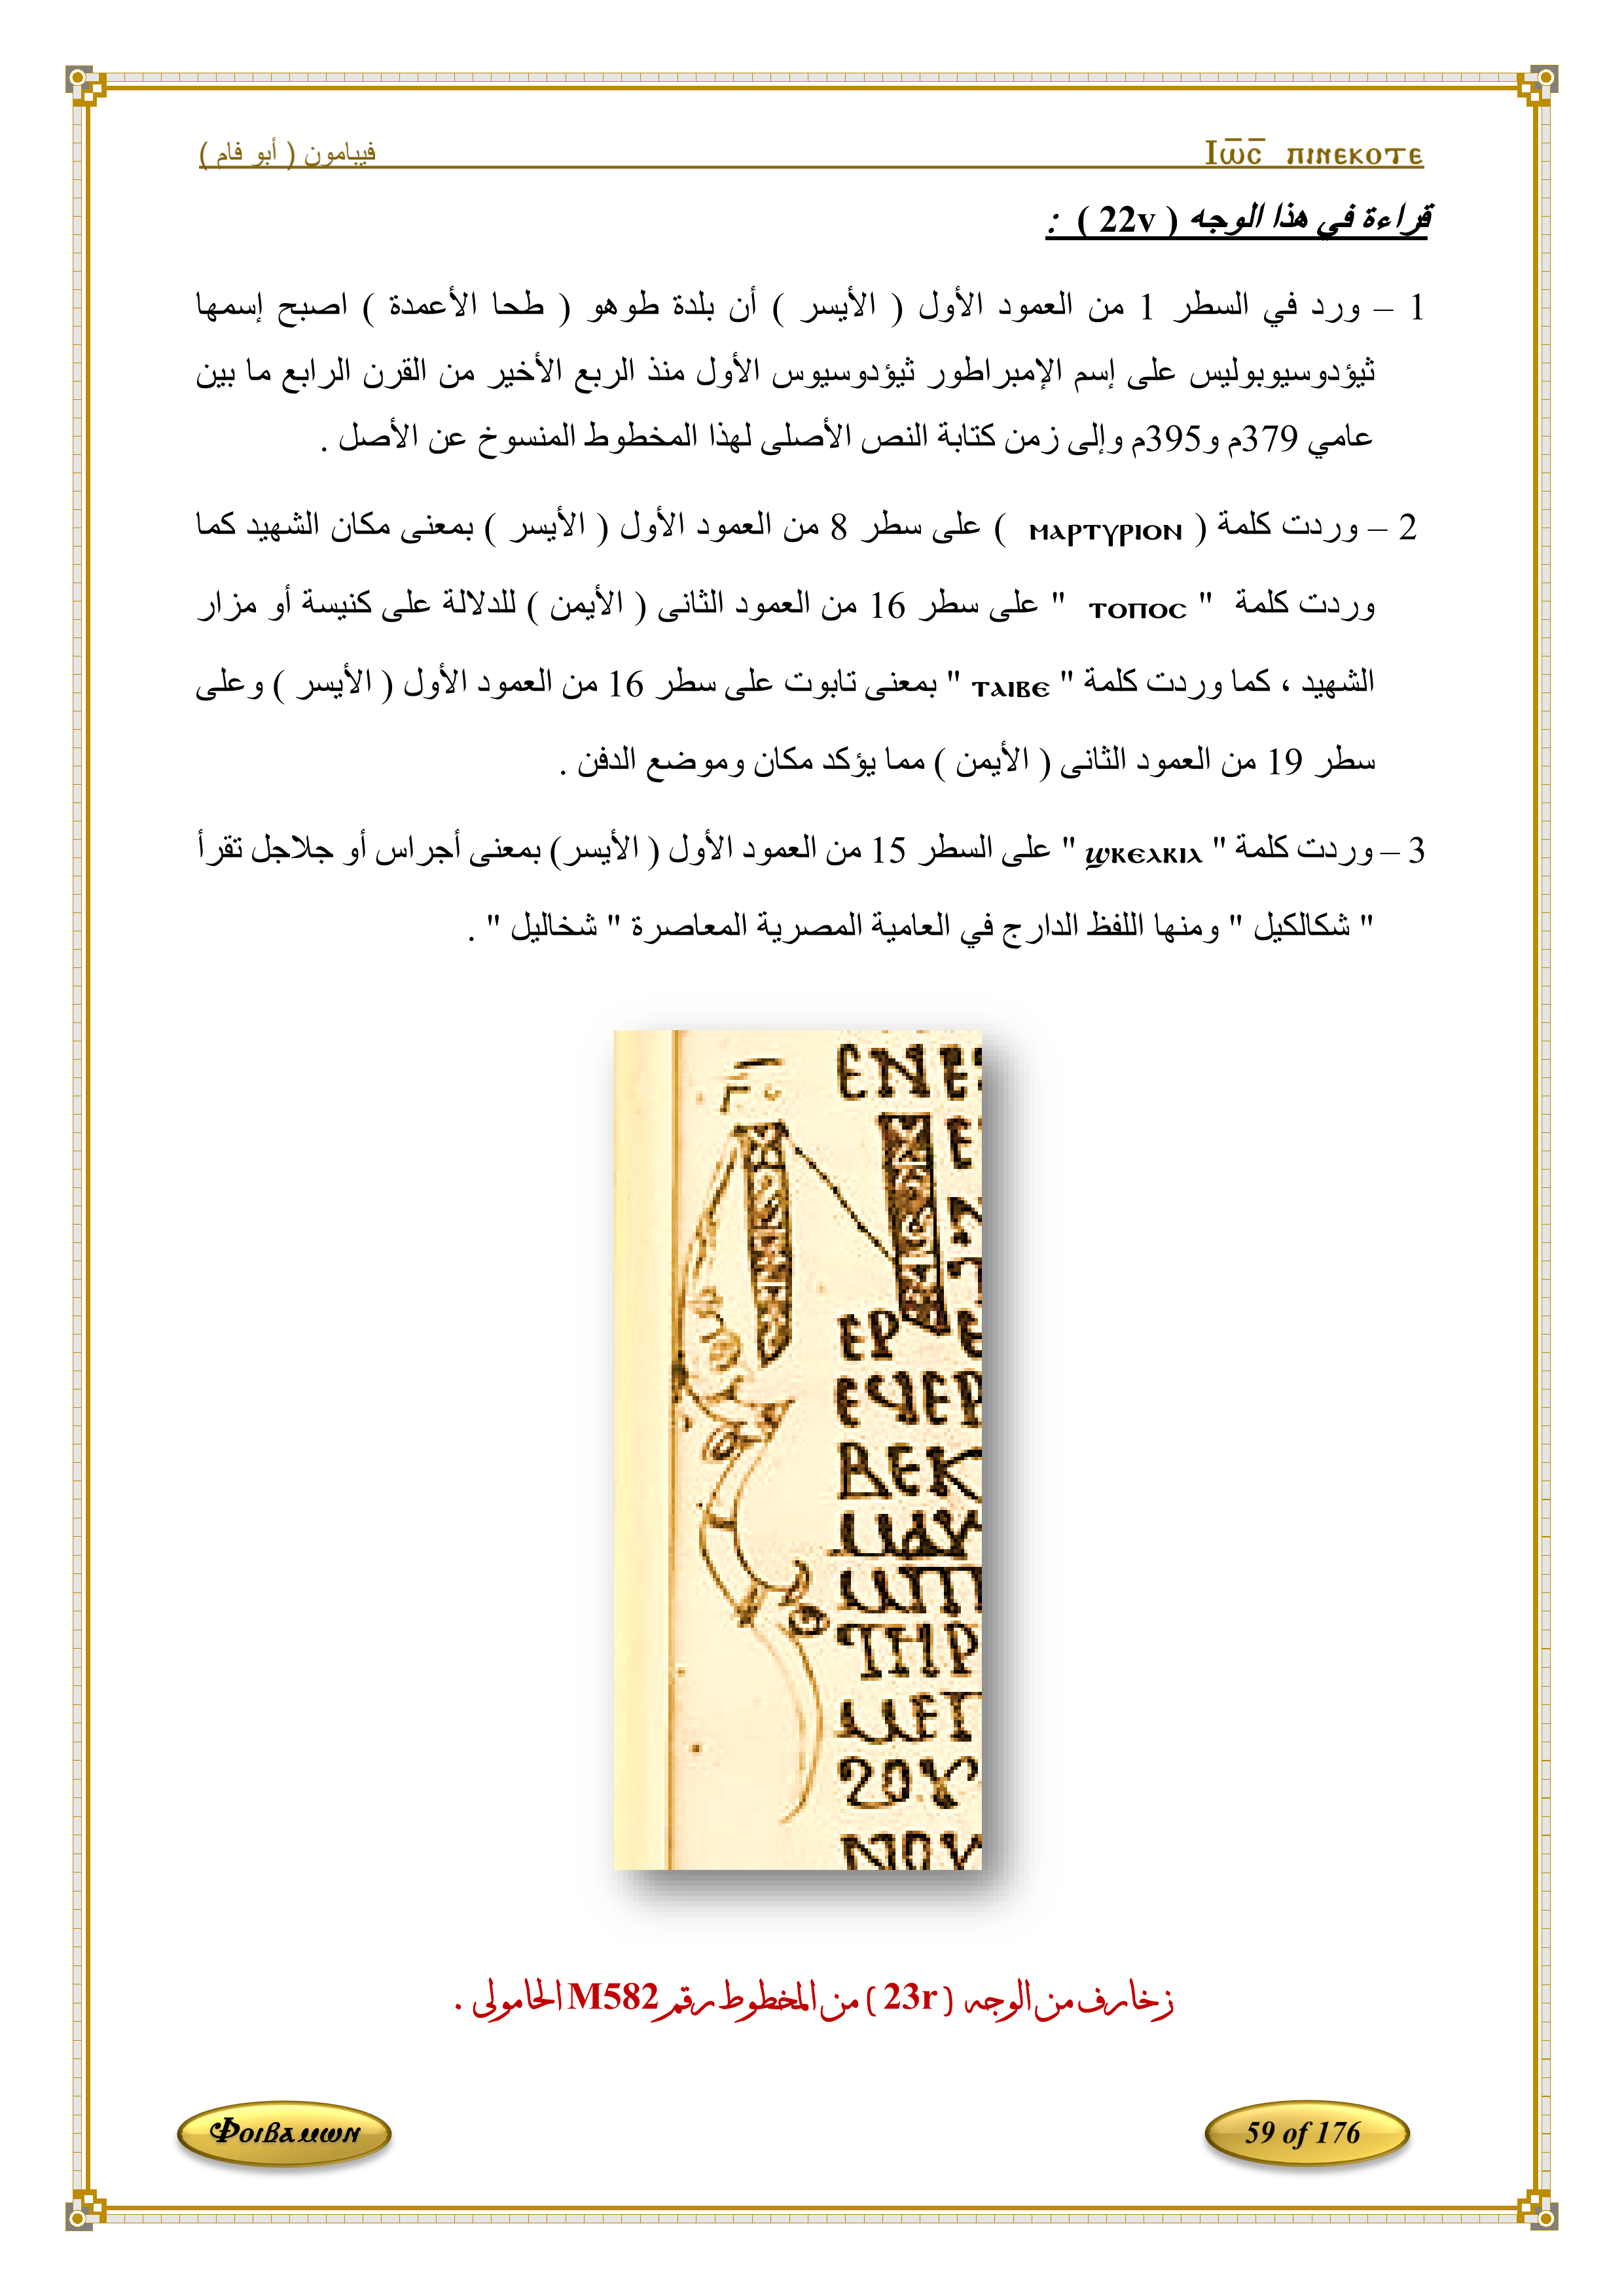 Ⲓⲱ̅ⲥ̅ ⲡⲓⲛⲉⲕⲟⲧⲉ
فيبامون ( أبو فام )
قراءة في هذا الوجه ( 22v ) :
1 – ورد في السطر 1 من العمود الأول ( الأيسر ) أن بلدة طوهو ( طحا الأعمدة ) اصبح إسمها
ثيؤدوسيوبوليس على إسم الإمبراطور ثيؤدوسيوس الأول منذ الربع الأخير من القرن الرابع ما بين
عامي 379م و395م وإلى زمن كتابة النص الأصلى لهذا المخطوط المنسوخ عن الأصل .
2 – وردت كلمة ( ⲙⲁⲣⲧⲩⲣⲓⲟⲛ ) على سطر 8 من العمود الأول ( الأيسر ) بمعنى مكان الشهيد كما
وردت كلمة " ⲧⲟⲡⲟⲥ " على سطر 16 من العمود الثانى ( الأيمن ) للدلالة على كنيسة أو مزار
الشهيد ، كما وردت كلمة " ⲧⲁⲓⲃⲉ " بمعنى تابوت على سطر 16 من العمود الأول ( الأيسر ) وعلى
سطر 19 من العمود الثانى ( الأيمن ) مما يؤكد مكان وموضع الدفن .
3 – وردت كلمة " ϣⲕⲉⲗⲕⲓⲗ " على السطر 15 من العمود الأول ( الأيسر) بمعنى أجراس أو جلاجل تقرأ
" شكالكيل " ومنها اللفظ الدارج في العامية المصرية المعاصرة " شخاليل " .
ⲉⲛⲉ
ⲉ
ⲉⲣ ⲉ
ⲉϥⲉⲣ
ⲃⲉⲕ
ⲙⲁⲩ
ⲙⲡ
ⲧⲏⲣ
ⲙⲉⲡ
ϩⲟⲩ
ⲛⲟⲩ
زخارف من الوجه ( 23r ) من المخطوط رقم M582 الحامولى .
Ⲫⲟⲓⲃⲁⲙⲱⲛ
59 of 176